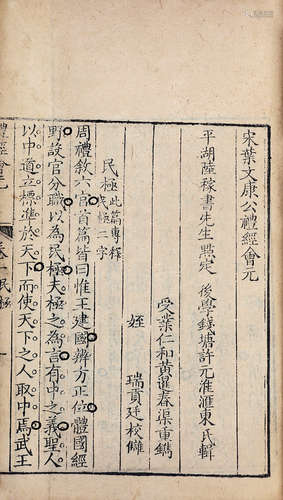 宋葉文康公禮經會元
平湖陸稼書先生㸃定　後學錢塘許元淮滙東氏輯
受業仁和黄暹秦渠重鐫
姪　瑞貢廷校讎
民極 此篇專釋民極二字
周禮敘六官首篇皆曰惟王建國辨方正位體國經
野設官分職以為民極夫極之為言有中之義聖人
以中道立標準於天下而使天下之人取中焉武王
禮經會元
卷一民極
一